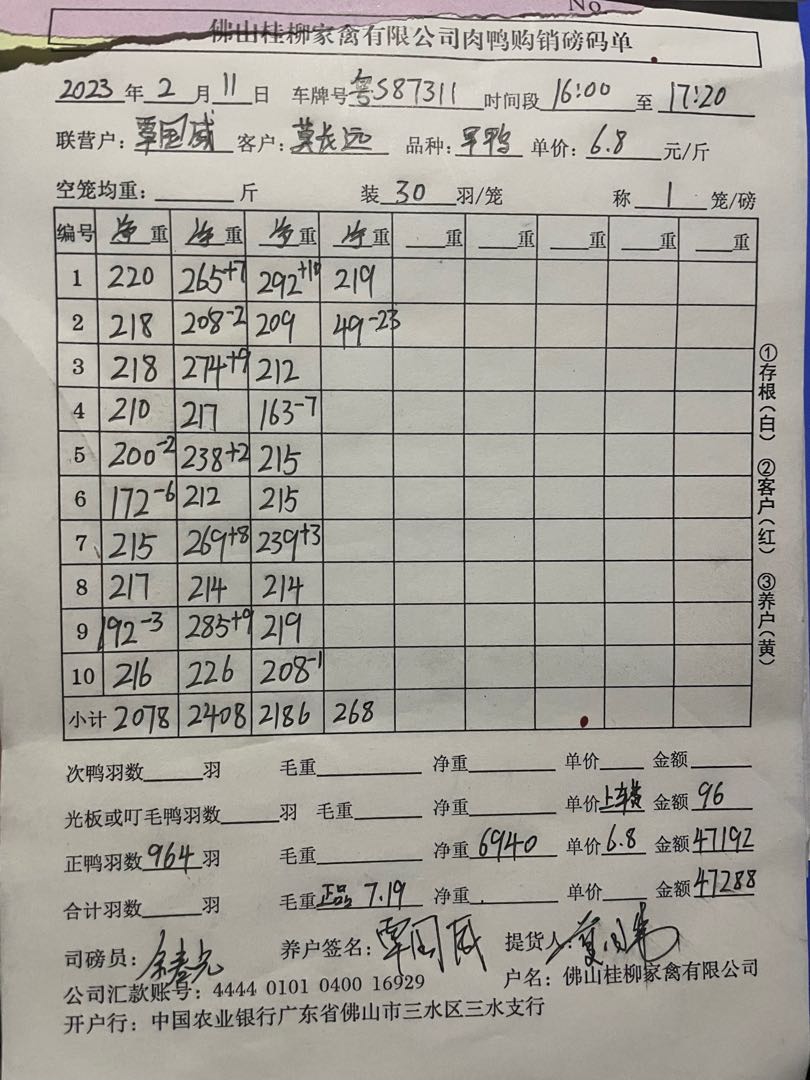 No
佛山桂柳家禽有限公司肉鸭购销磅码单
2023年2月11日 车牌号粤S87311 时间段16:00至17:20
联营户:覃国威 客户:莫长远 品种:旱鸭 单价:6.8元/斤
空笼均重:______斤 装30羽/笼 称1笼/磅
编号 净重 净重 净重 净重 __重 __重 __重 __重 __重
1 220 265+7 292+10 219
2 218 208-2 209 49-23
3 218 274+9 212
4 210 217 163-7
5 200-2 238+2 215
6 172-6 212 215
7 215 269+8 239+3
8 217 214 214
9 192-3 285+9 219
10 216 226 208-1
小计 2078 2408 2186 268
①存根(白) ②客户(红) ③养户(黄)
次鸭羽数_____羽 毛重________ 净重________ 单价_____ 金额_____
光板或叮毛鸭羽数_____羽 毛重________ 净重________ 单价上车费 金额96
正鸭羽数964羽 毛重________ 净重6940 单价6.8 金额47192
合计羽数_____羽 毛重正品7.19 净重________ 单价_____ 金额47288
司磅员: 养户签名:覃国威 提货人:
公司汇款账号:4444 0101 0400 16929 户名:佛山桂柳家禽有限公司
开户行:中国农业银行广东省佛山市三水区三水支行